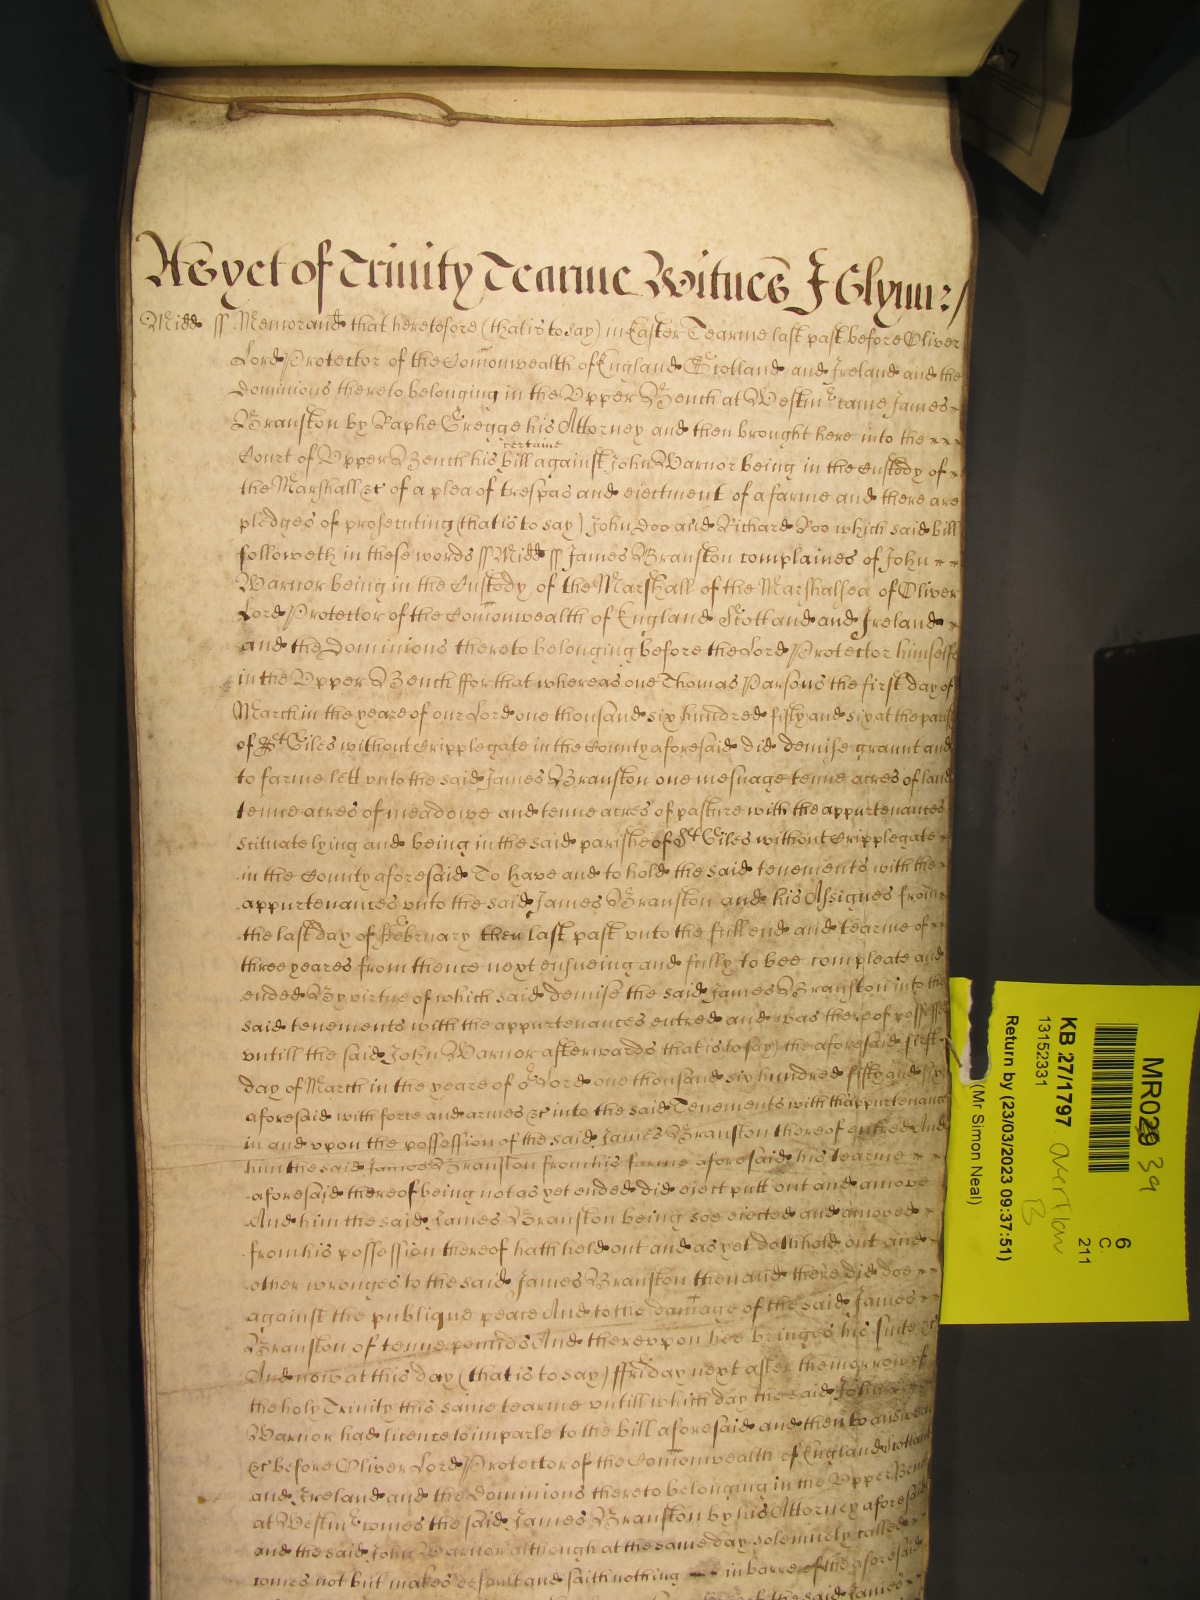 As yet of Trinity Tearme Witnes J Glynn:/
Midd ss Memorand that heretofore (that is to say) in Easter Tearme last past before Oliver
Lord Protector of the Comonwealth of England Scotland and Ireland and the
Dominions thereto belonging in the Upper Bench at Westmr came James
Branston by Raphe Gregge his Attorney and then brought here into the
certaine
Court of Upper Bench his bill against John Warnor being in the Custody of
the Marshall &c of a plea of trespas and eiectment of a farme and there are
pledges of prosecuting (that is to say) John Doo and Richard Roo which said bill
followeth in these words ss Midd ss James Branston complaines of John
Warnor being in the Custody of the Marshall of the Marshalsea of Oliver
Lord Protector of the Comonwealth of England Scotland and Ireland
and the Dominions thereto belonging before the Lord Protector himselfe
in the Upper Bench ffor that whereas one Thomas Parsons the first day of
March in the yeare of our Lord one thousand six hundred fifty and six at the parish
of St Giles without Cripplegate in the County aforesaid did demise graunt and
to farme lett unto the said James Branston one mesuage tenne acres of land
tenne acres of meadowe and tenne acres of pasture with the appurtenances
scituate lying and being in the said parishe of St Giles without Cripplegate
in the County aforesaid To have and to hold the said tenements with the
appurtenances unto the said James Branston and his Assignes from
the last day of February then last past unto the full end and tearme of
three yeares from thence next ensueing and fully to bee compleate and
ended By virtue of which said demise the said James Branston into the
said tenements with the appurtenances entred and was thereof possessed
untill the said John Warnor afterwards that is to say) the aforesaid first
day of March in the yeare of or Lord one thousand six hundred fifty and six
aforesaid with force and armes &c into the said Tenements with thappurtenances
in and upon the possession of the said James Branston thereof entred And
him the said James Branston from his farme aforesaid his tearme
aforesaid thereof being not as yet ended did eiect putt out and amove
And him the said James Branston being soe eiected and amoved
from his possession thereof hath held out and as yet doth hold out and
other wronges to the said James Branston then and there did doe
against the publique peace And to the damage of the said James
Branston of tenne pounds And thereupon hee bringes his suite &c
And now at this day (that is to say) ffriday next after the morrow of
the holy Trinity this same tearme untill which day the said John
Warnor had licence to imparle to the bill aforesaid and then to answear
&c before Oliver Lord Protector of the Comonwealth of England Scotland
and Ireland and the Dominions thereto belonging in the Upper Bench
at Westmr comes the said James Branston by his Attorney aforesaid
and the said John Warnor although at the same day solemnely called
comes not but makes default and saith nothing in barre of the aforesaid
of the said James
MR029 39
6
C
211
KB 27/1797 overflow
B
13152331
Return by (23/03/2023 09:37:51)
(Mr Simon Neal)